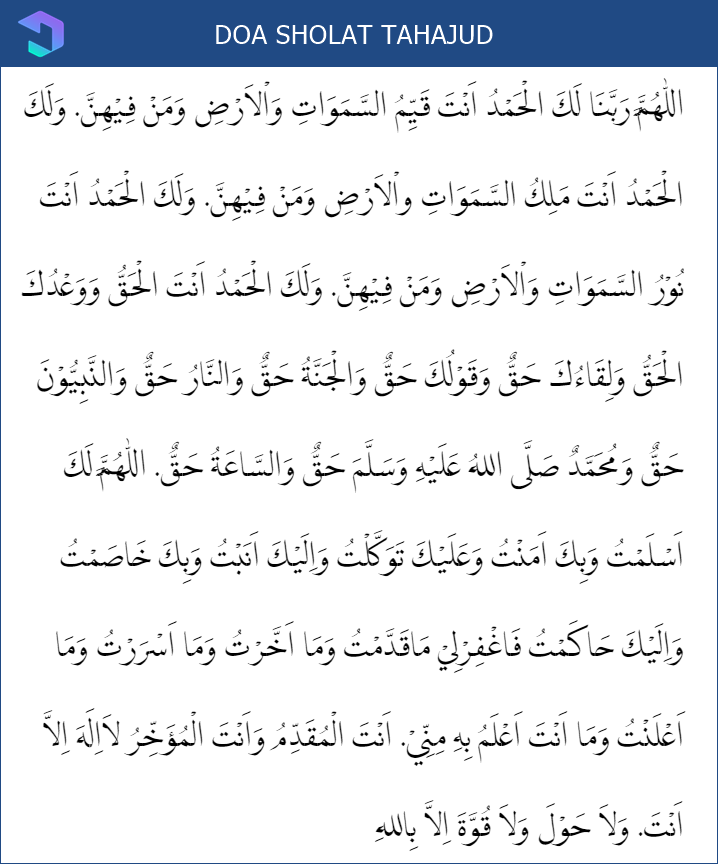 DOA SHOLAT TAHAJUD
اللّٰهُمَّ رَبَّنَا لَكَ الْحَمْدُ اَنْتَ قَيِّمُ السَّمَوَاتِ وَاْلاَرْضِ وَمَنْ فِيْهِنَّ. وَلَكَ
الْحَمْدُ اَنْتَ مَلِكُ السَّمَوَاتِ واْلاَرْضِ وَمَنْ فِيْهِنَّ. وَلَكَ الْحَمْدُ اَنْتَ
نُوْرُ السَّمَوَاتِ وَاْلاَرْضِ وَمَنْ فِيْهِنَّ. وَلَكَ الْحَمْدُ اَنْتَ الْحَقُّ وَوَعْدُكَ
الْحَقُّ وَلِقَاءُكَ حَقٌّ وَقَوْلُكَ حَقٌّ وَالْجَنَّةُ حَقٌّ وَالنَّارُ حَقٌّ وَالنَّبِيُّوْنَ
حَقٌّ وَمُحَمَّدٌ صَلَّى اللهُ عَلَيْهِ وَسَلَّمَ حَقٌّ وَالسَّاعَةُ حَقٌّ. اللّٰهُمَّ لَكَ
اَسْلَمْتُ وَبِكَ اَمَنْتُ وَعَلَيْكَ تَوَكَّلْتُ وَاِلَيْكَ اَنَبْتُ وَبِكَ خَاصَمْتُ
وَاِلَيْكَ حَاكَمْتُ فَاغْفِرْلِيْ مَاقَدَّمْتُ وَمَا اَخَّرْتُ وَمَا اَسْرَرْتُ وَمَا
اَعْلَنْتُ وَمَا اَنْتَ اَعْلَمُ بِهِ مِنِّيْ. اَنْتَ الْمُقَدِّمُ وَاَنْتَ الْمُؤَخِّرُ لاَاِلَهَ اِلاَّ
اَنْتَ. وَلاَ حَوْلَ وَلاَ قُوَّةَ اِلاَّ بِاللهِ